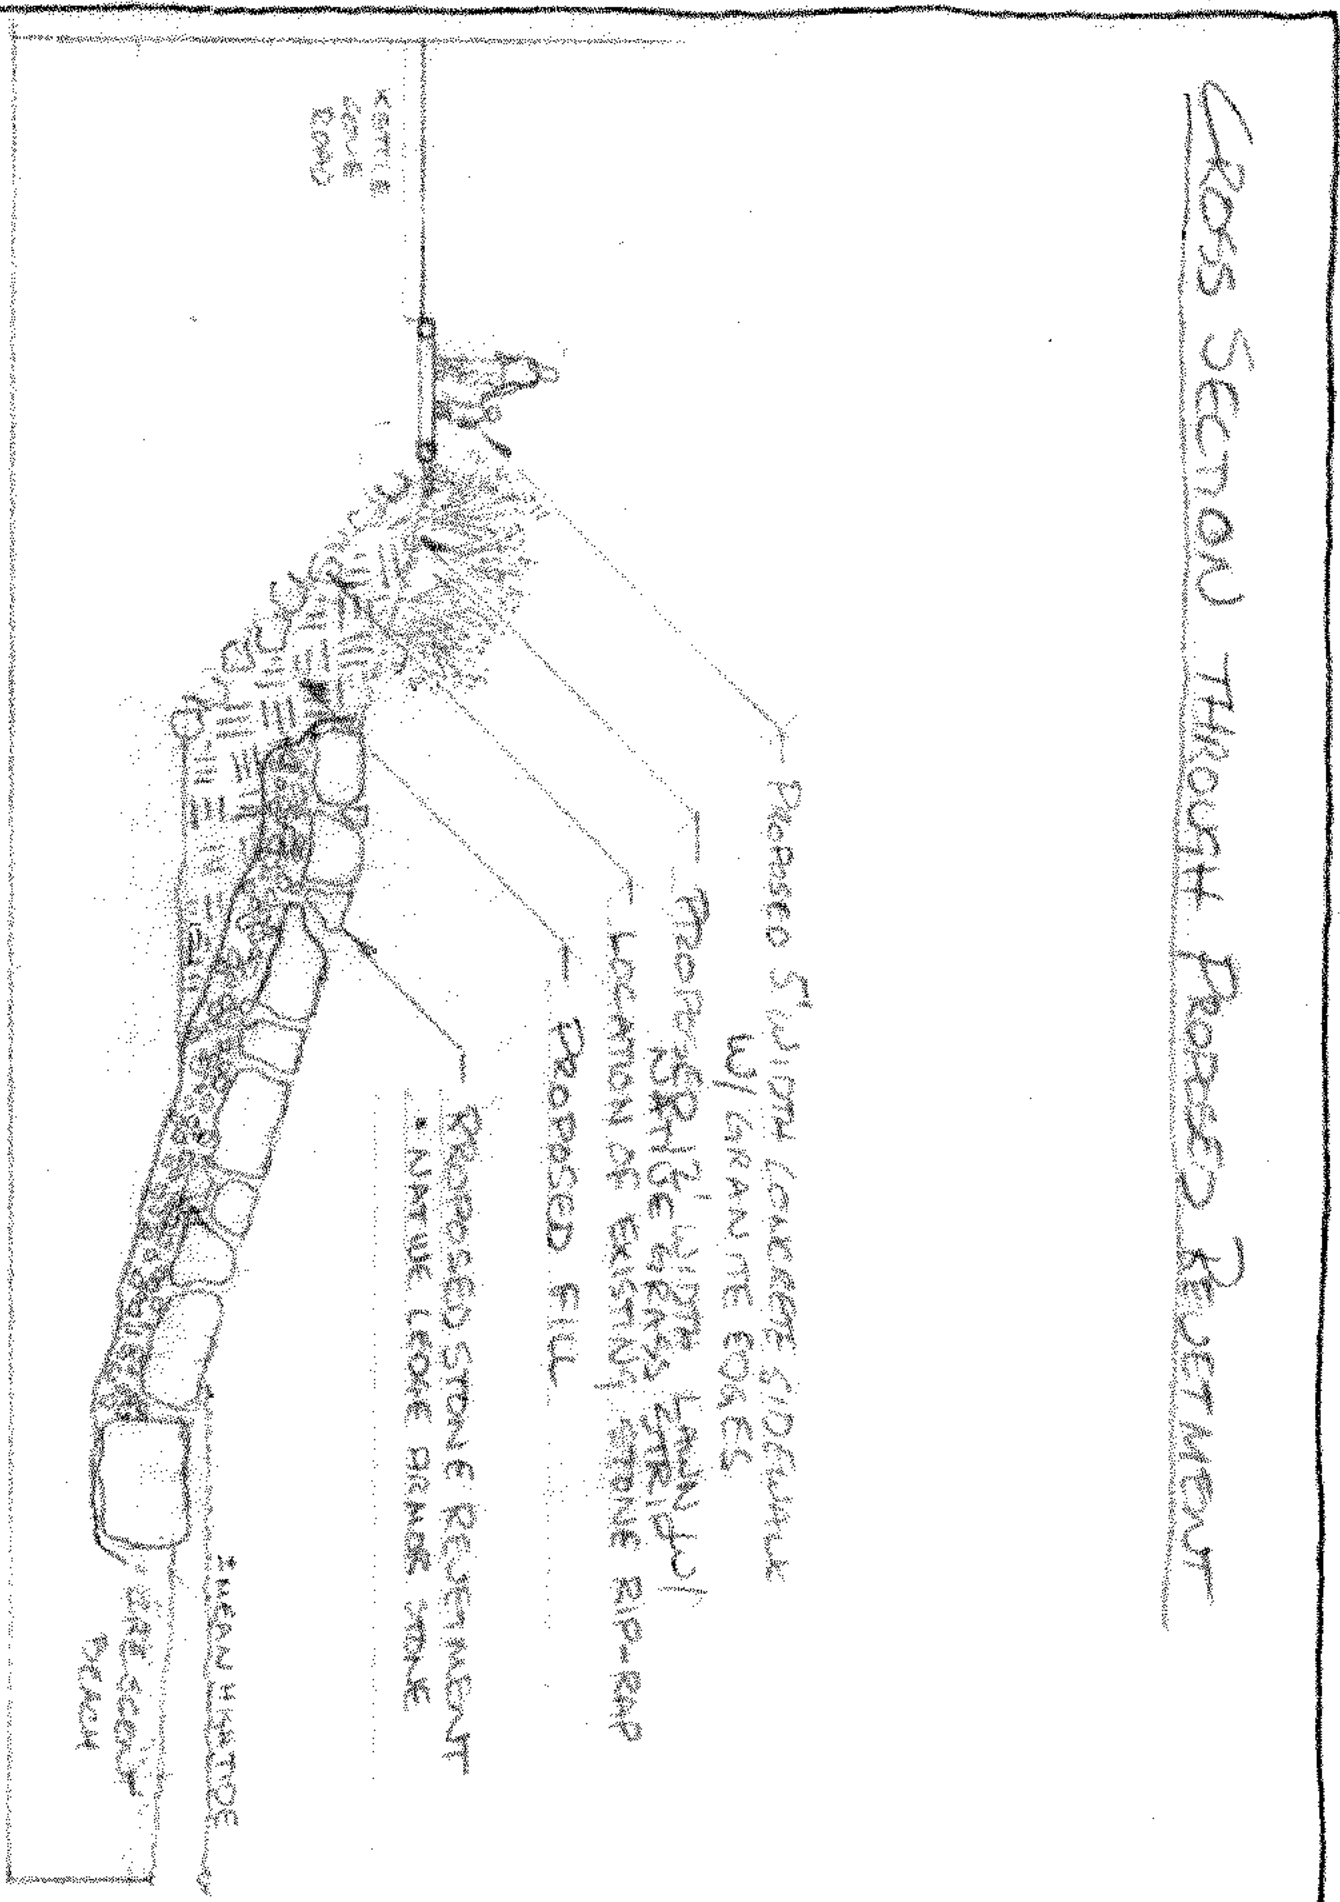 CROSS SECTION THROUGH PROPOSED REVETMENT
PROPOSED 5' WIDTH CONCRETE SIDEWALK
W/ GRANITE EDGES
PROPOSED 12' WIDTH LAWN W/
NATIVE GRASS STRIP
LOCATION OF EXISTING STONE RIP-RAP
PROPOSED FILL
PROPOSED STONE REVETMENT
• NATIVE LEDGE ARMOR STONE
KETTLE
COVE
ROAD
± MEAN HIGH TIDE
CRESCENT
BEACH